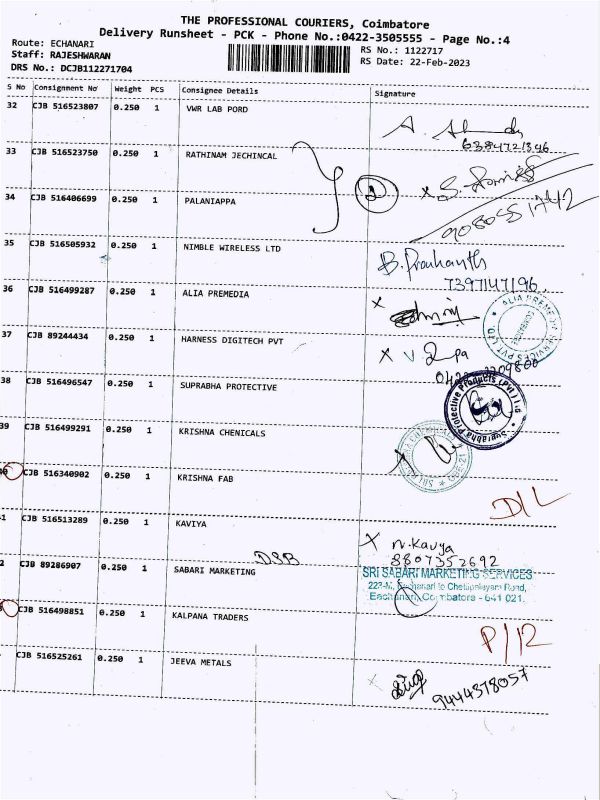 THE PROFESSIONAL COURIERS, Coimbatore
Delivery Runsheet - PCK - Phone No.:0422-3505555 - Page No.:4
Route: ECHANARI
RS No.: 1122717
Staff: RAJESHWARAN
RS Date: 22-Feb-2023
DRS No.: DCJB112271704
S No Consignment No Weight PCS Consignee Details Signature
32 CJB 516523807 0.250 1 VWR LAB PORD
6384721346
33 CJB 516523750 0.250 1 RATHINAM JECHINCAL
34 CJB 516406699 0.250 1 PALANIAPPA
9080551742
35 CJB 516505932 0.250 1 NIMBLE WIRELESS LTD
B. Prashanth
7397147196
36 CJB 516499287 0.250 1 ALIA PREMEDIA
ALIA PREMEDIA SERVICES PVT LTD
37 CJB 89244434 0.250 1 HARNESS DIGITECH PVT
38 CJB 516496547 0.250 1 SUPRABHA PROTECTIVE
Suprabha Protective Products (Pvt) Ltd
39 CJB 516499291 0.250 1 KRISHNA CHENICALS
CJB 516340902 0.250 1 KRISHNA FAB
D/L
1 CJB 516513289 0.250 1 KAVIYA
N. Kavya
8807352692
2 CJB 89286907 0.250 1 SABARI MARKETING
DSB
SRI SABARI MARKETING SERVICES
223-M, Eachanari to Chettipalayam Road,
Eachanari, Coimbatore - 641 021.
CJB 516498851 0.250 1 KALPANA TRADERS
P/12
CJB 516525261 0.250 1 JEEVA METALS
9444378057